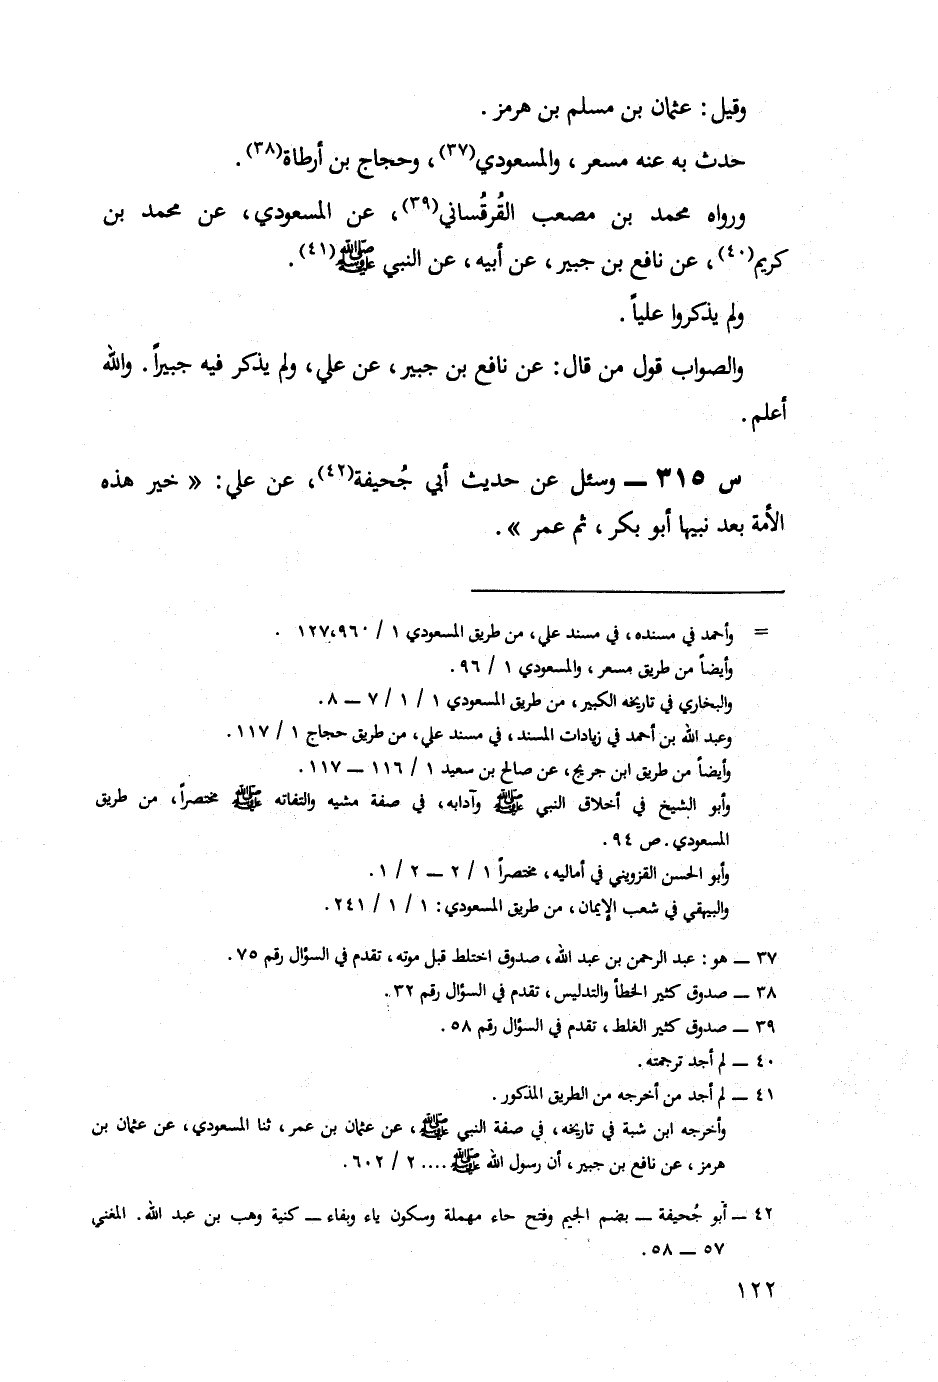 وقيل : عثمان بن مسلم بن هرمز .
حدث به عنه مسعر ، والمسعودي(٣٧) ، وحجاج بن أرطاة(٣٨) .
ورواه محمد بن مصعب القُرقُساني(٣٩)، عن المسعودي، عن محمد بن
كريم(٤٠) ، عن نافع بن جبير ، عن أبيه ، عن النبي ﷺ(٤١) .
ولم يذكروا علياً .
والصواب قول من قال : عن نافع بن جبير ، عن علي ، ولم يذكر فيه جبيراً . والله
أعلم .
س ٣١٥ ــ وسئل عن حديث أبي جُحيفة(٤٢)، عن علي : « خير هذه
الأمة بعد نبيها أبو بكر ، ثم عمر » .
= وأحمد في مسنده ، في مسند علي ، من طريق المسعودي ١ / ١٢٧،٩٦٠ .
وأيضاً من طريق مسعر ، والمسعودي ١ / ٩٦ .
والبخاري في تاريخه الكبير ، من طريق المسعودي ١ / ١ / ٧ ــ ٨ .
وعبد الله بن أحمد في زيادات المسند ، في مسند علي ، من طريق حجاج ١ / ١١٧ .
وأيضاً من طريق ابن جريج ، عن صالح بن سعيد ١ / ١١٦ ــ ١١٧ .
وأبو الشيخ في أخلاق النبي ﷺ وآدابه ، في صفة مشيه والتفاته ﷺ مختصراً ، من طريق
المسعودي . ص ٩٤ .
وأبو الحسن القزويني في أماليه ، مختصراً ١ / ٢ ــ ٢ / ١ .
والبيهقي في شعب الإيمان ، من طريق المسعودي : ١ / ١ / ٢٤١ .
٣٧ ــ هو : عبد الرحمن بن عبد الله ، صدوق اختلط قبل موته ، تقدم في السؤال رقم ٧٥ .
٣٨ ــ صدوق كثير الخطأ والتدليس ، تقدم في السؤال رقم ٣٢ .
٣٩ ــ صدوق كثير الغلط ، تقدم في السؤال رقم ٥٨ .
٤٠ ــ لم أجد ترجمته .
٤١ ــ لم أجد من أخرجه من الطريق المذكور .
وأخرجه ابن شبة في تاريخه ، في صفة النبي ﷺ ، عن عثمان بن عمر ، ثنا المسعودي ، عن عثمان بن
هرمز ، عن نافع بن جبير ، أن رسول الله ﷺ .... ٢ / ٦٠٢ .
٤٢ ــ أبو جُحيفة ــ بضم الجيم وفتح حاء مهملة وسكون ياء وبفاء ــ كنية وهب بن عبد الله . المغني
٥٧ ــ ٥٨ .
١٢٢